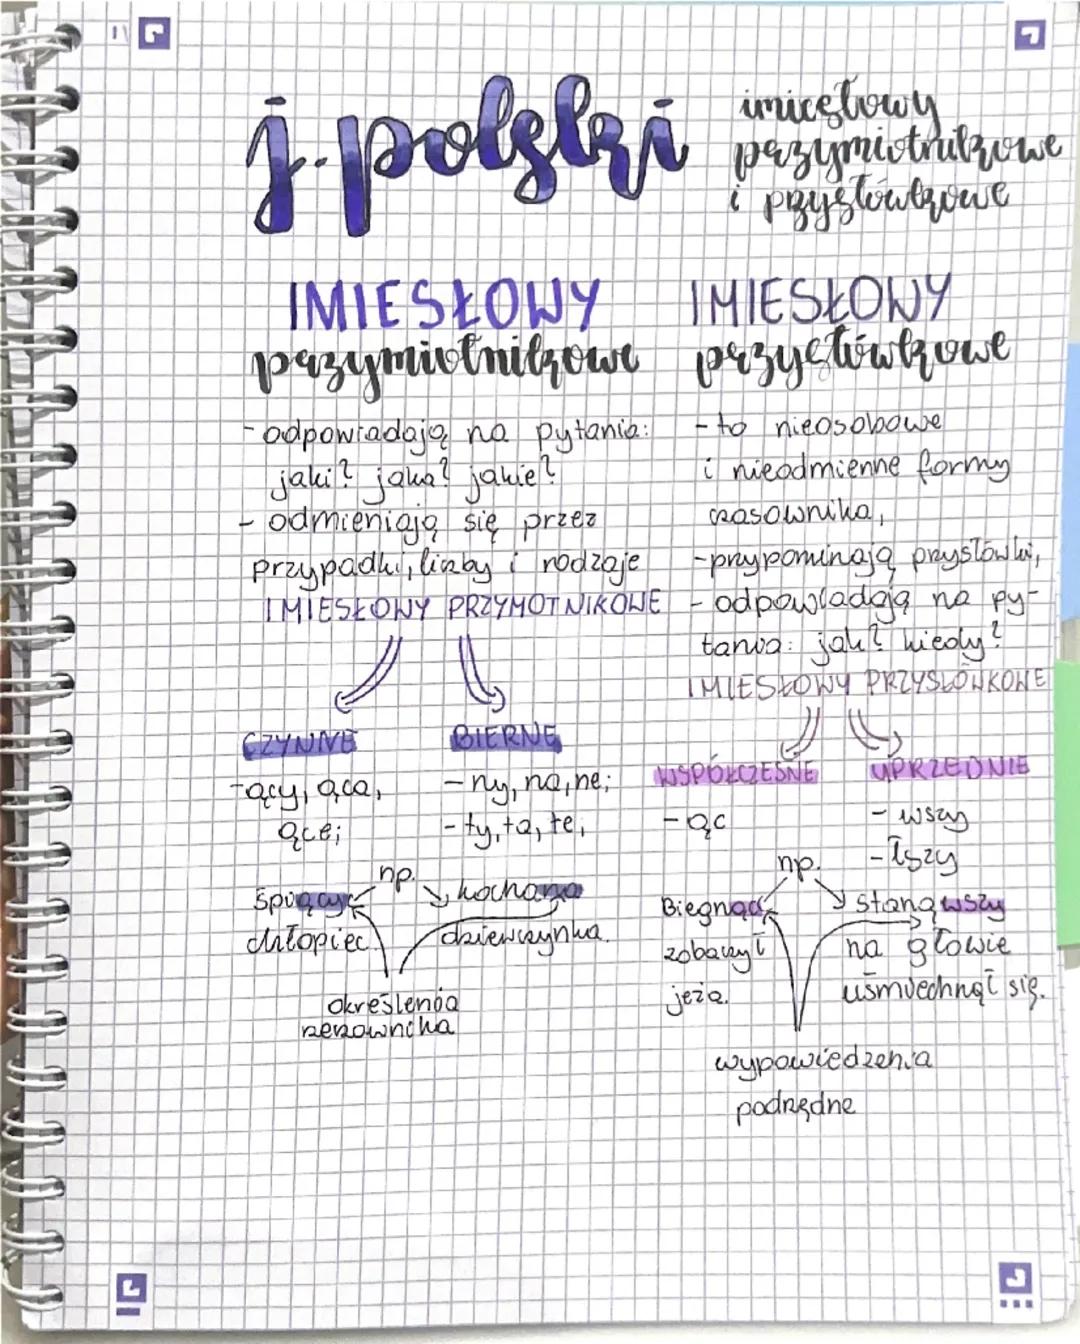 j. polski
imiesłowy
przymiotnikowe
i przysłówkowe
IMIESŁOWY
przymiotnikowe
- odpowiadają na pytania:
jaki? jaka? jakie?
- odmieniają się przez
przypadki, liczby i rodzaje
IMIESŁOWY PRZYMOTNIKOWE
CZYNNE
-ący, ąca,
ące;
BIERNE
- ny, na, ne;
- ty, ta, te;
np.
śpiący
chłopiec
kochana
dziewczynka.
określenia
rzeczownika
IMIESŁOWY
przysłówkowe
- to nieosobowe
i nieodmienne formy
czasownika,
- przypominają przysłówki,
- odpowiadają na py-
tania: jak? kiedy?
IMIESŁOWY PRZYSŁÓWKOWE
WSPÓŁCZESNE
- ąc
UPRZEDNIE
- wszy
- łszy
np.
Biegnąc
zobaczył
jeża.
stanąwszy
na głowie
uśmiechnął się.
wypowiedzenia
podrzędne